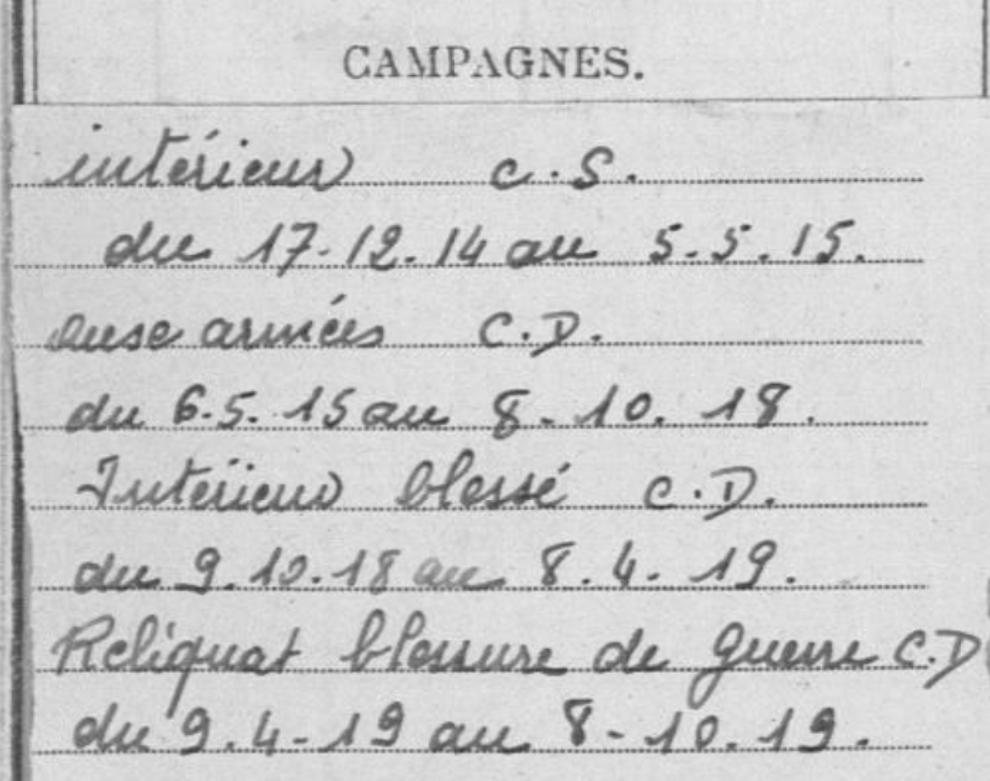 CAMPAGNES.
intérieur C.S.
du 17.12.14 au 5.5.15.
aux armées C.D.
du 6.5.15 au 8.10.18.
Intérieur blessé C.D.
du 9.10.18 au 8.4.19.
Reliquat blessure de guerre C.D
du 9.4-19 au 8-10.19.